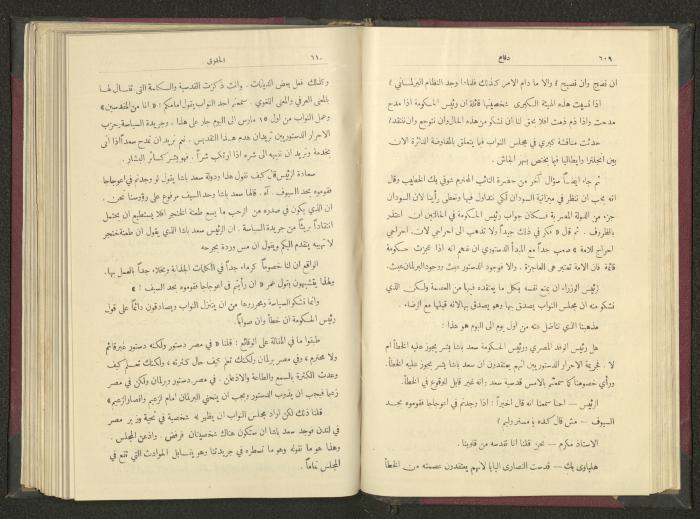 ٦٠٩ دفاع
ان قصيح وان قصيح ؟ والا ما دام الامر كذلك فلماذا وجد النظام البرلماني ؟
اذا نسيت هذه الهيئة الكبرى شخصيتها قائلة ان رئيس الحكومة اذا مدح
مدحت واذا ذم ذمت أفلا يحق لنا ان نشكو من هذه الحال وان نتوجع وان ننتقد؟
حدثت مناقشة كبرى في مجلس النواب فيما يتعلق بالمفاوضة الدائرة الآن
بين انجلترا وايطاليا فيما يختص بنهر الجاش .
ثم جاء ايضاً سؤال آخر من حضرة النائب المحترم شوقي بك الخطيب وقال
انه يجب ان ننظر في ميزانية السودان لكي نتناول فيها ونعطى رأينا لان السودان
جزء من الدولة المصرية فكان جواب رئيس الحكومة في الحالتين ان اعتذر
بالظروف . ثم قال « فكر في ذلك جيداً ولا تذهب الى احراجي لان احراجي
احراج للامة » صعب جداً مع المبدأ الدستوري ان نفهم انه اذا عجزت حكومة
قائمة فان الامة تعتبر هي العاجزة . والا فوجود الدستور عبث ووجود البرلمان عبث.
لرئيس الوزراء ان يمتع نفسه بكل ما يعتقده فيها من العصمة ولكن الذي
نشكو منه ان مجلس النواب يصدق بها وهو يصدق بها لانه قبلها مع الرضاء .
مذهبنا الذي نناضل عنه من اول يوم الى اليوم هو هذا :
هل رئيس الوفد المصري ورئيس الحكومة سعد باشا بشر يجوز عليه الخطأ أم
لا . فجريمة الاحرار الدستوريين انهم يعتقدون ان سعد باشا بشر يجوز عليه الخطأ.
ورأي خصومنا كما سمعتم بالأمس قدسية سعد وانه غير قابل للوقوع في الخطأ .
الرئيس — احنا سمعنا انه قال أخيراً : اذا وجدتم في اعوجاجا فقوموه بحد
السيوف — مش قال كده يا مستر وليم ؟
الاستاذ مكرم — نحن قلنا اننا نقدسه من قلوبنا .
هلباوي بك — قدست النصارى البابا لانهم يعتقدون عصمته من الخطأ
٦١٠ الحقوق
وكذلك فعل بعض الديانات . وانت ذكرت القدسية والكلمة التي تقال لها
بالمعنى العرفي والمعنى اللغوي . سمعتم احد النواب يقول امامكم : « انا من المقدسين »
وعمل النواب من اول ١٥ مارس الى اليوم جار على هذا . وجريدة السياسة وحزب
الاحرار الدستوريين تريدان هدم هذا التقديس . نعم نريد ان نمدح سعداً اذا أتى
بخدمة ونريد ان ننبه الى شره اذا ارتكب شراً . فهو بشر كسائر البشر .
سعادة الرئيس قال كيف نقول هذا ودولة سعد باشا يقول لو وجدتم في اعوجاجا
فقوموه بحد السيوف . آه . قالها سعد باشا وحد السيف مرفوع على رؤوسنا نحن .
ان الذي يكون في صدره من الرحب ما يسع طعنة الخنجر أفلا يستطيع ان يحتمل
انتقاداً بريئاً من جريدة السياسة . ان الرئيس سعد باشا الذي يقول ان طعنة خنجر
لا تهيبه يتقدم اليكم ويقول ان مس وردة يجرحه
الواقع ان لنا خصوماً كرماء جداً في الكلمات الجذابة وبخلاء جداً بالعمل بها.
ولهذا يتشبهون بقول عمر « ان رأيتم في اعوجاجا فقوموه بحد السيف ! »
وانما نشكو السياسة ومحرروها من ان يتنزل النواب ويصادقون دائماً على قول
رئيس الحكومة ان خطأ وان صواباً.
طبقوا ما في المقالة على الوقائع : قلنا « في مصر دستور ولكنه دستور غير قائم
ولا محترم ، وفي مصر برلمان ولكنك تعلم كيف حال كثرته ، ولكنك تعلم كيف
وعدت الكثرة بالسمع والطاعة والاذعان . في مصر دستور وبرلمان ولكن في مصر
زعيما فيجب ان يذوب الدستور ويجب ان ينحني البرلمان امام الزعيم وانصار الزعيم»
قلنا ذلك لكن اراد مجلس النواب ان يظهر له شخصية في تحية وزير مصر
في لندن فوجد سعد باشا ان ستكون هناك شخصيتان فرفض . واذعن المجلس .
وهذا هو ما نقوله وهو ما نسطره في جريدتنا وهو يسايل الحوادث التي تقع في
المجلس تماماً .